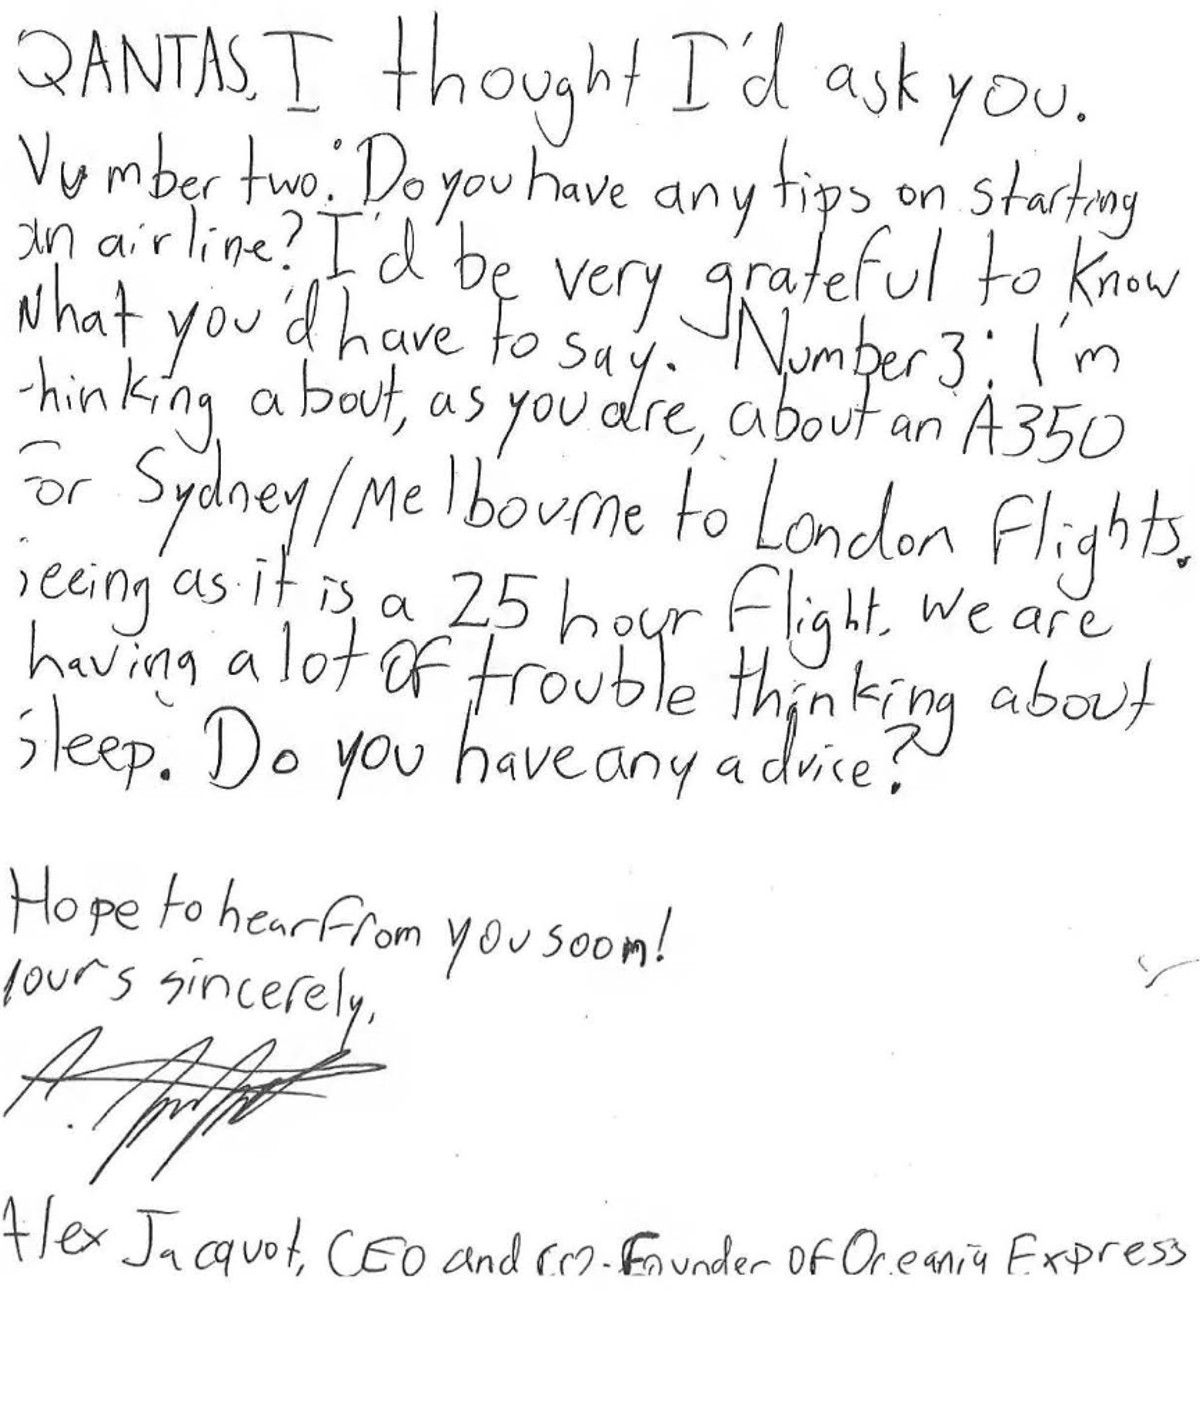 QANTAS, I thought I'd ask you.
Number two: Do you have any tips on starting
an airline? I'd be very grateful to know
what you'd have to say. Number 3: I'm
thinking about, as you are, about an A350
for Sydney/Melbourne to London flights.
seeing as it is a 25 hour flight. we are
having a lot of trouble thinking about
sleep. Do you have any advice?
Hope to hear from you soon!
Yours sincerely,
Alex Jacquot, CEO and co-Founder of Oceania Express